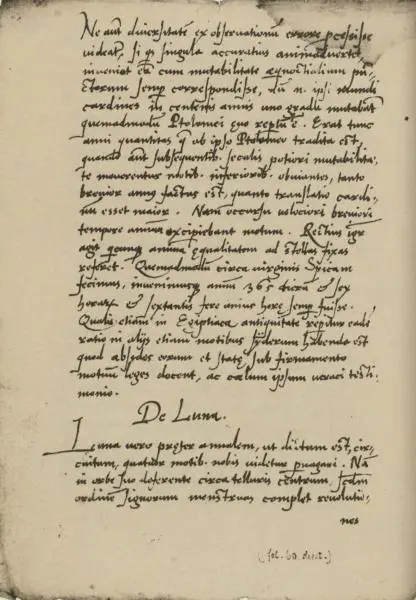 Ne aut diversitatē ex observationum errore ꝓcesisse
videat, si qs singula accuratius animadverterit,
inveniet eā cum mutabilitate æquoctialium pū-
ctorum semp correspondisse, dū n. ipsi mundi
cardines in centenis annis uno gradu mutabāt
quemadmodū Ptolomei evo reptū ē. Erat tunc
anni quantitas q ab ipso Ptolomeo tradita est,
quando aut subsequentib. seculis potiori mutabilita-
te moverentur motib. inferiorib. obviantes, tanto
brevior annus factus est, quanto translatio cardi-
nū esset maior. Nam occursu velociori breviori
tempore annuū excipiebant motum. Rectius igr
agit annuā equalitatem ad stellas fixas
referet. Quemadmodū circa virginis spicam
fecimus, invenimusq annū 365 dierū et sex
horarū et sextantis fere unius horę semp fuisse.
Qualis etiam in Egiptiaca antiquitate repitur eadē
ratio in alijs etiam motibus syderum habenda est
quod absides eorum et statę sub firmamento
motuum leges docent, ac cælum ipsum veraci testi-
monio.
De Luna.
Luna vero preter annalem, ut dictum est, cir-
cuitum, quatuor motib. nobis videtur pvagari. Nā
in orbe suo deferente circa telluris centrum, scdm
ordinē signorum menstruas complet revolutio-
nes